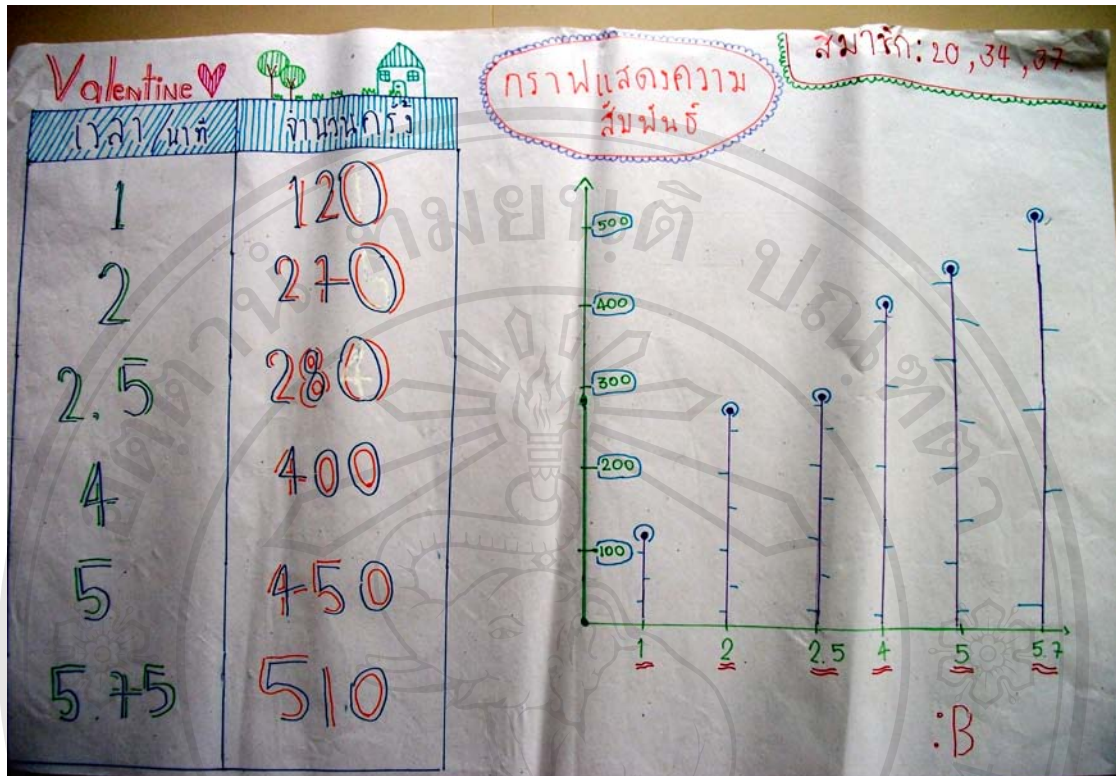 Valentine
เวลา /นาที จำนวนครั้ง
1 120
2 270
2.5 280
4 400
5 450
5.75 510
กราฟแสดงความ
สัมพันธ์
สมาชิก: 20, 34, 37
500
400
300
200
100
1 2 2.5 4 5 5.7
:B